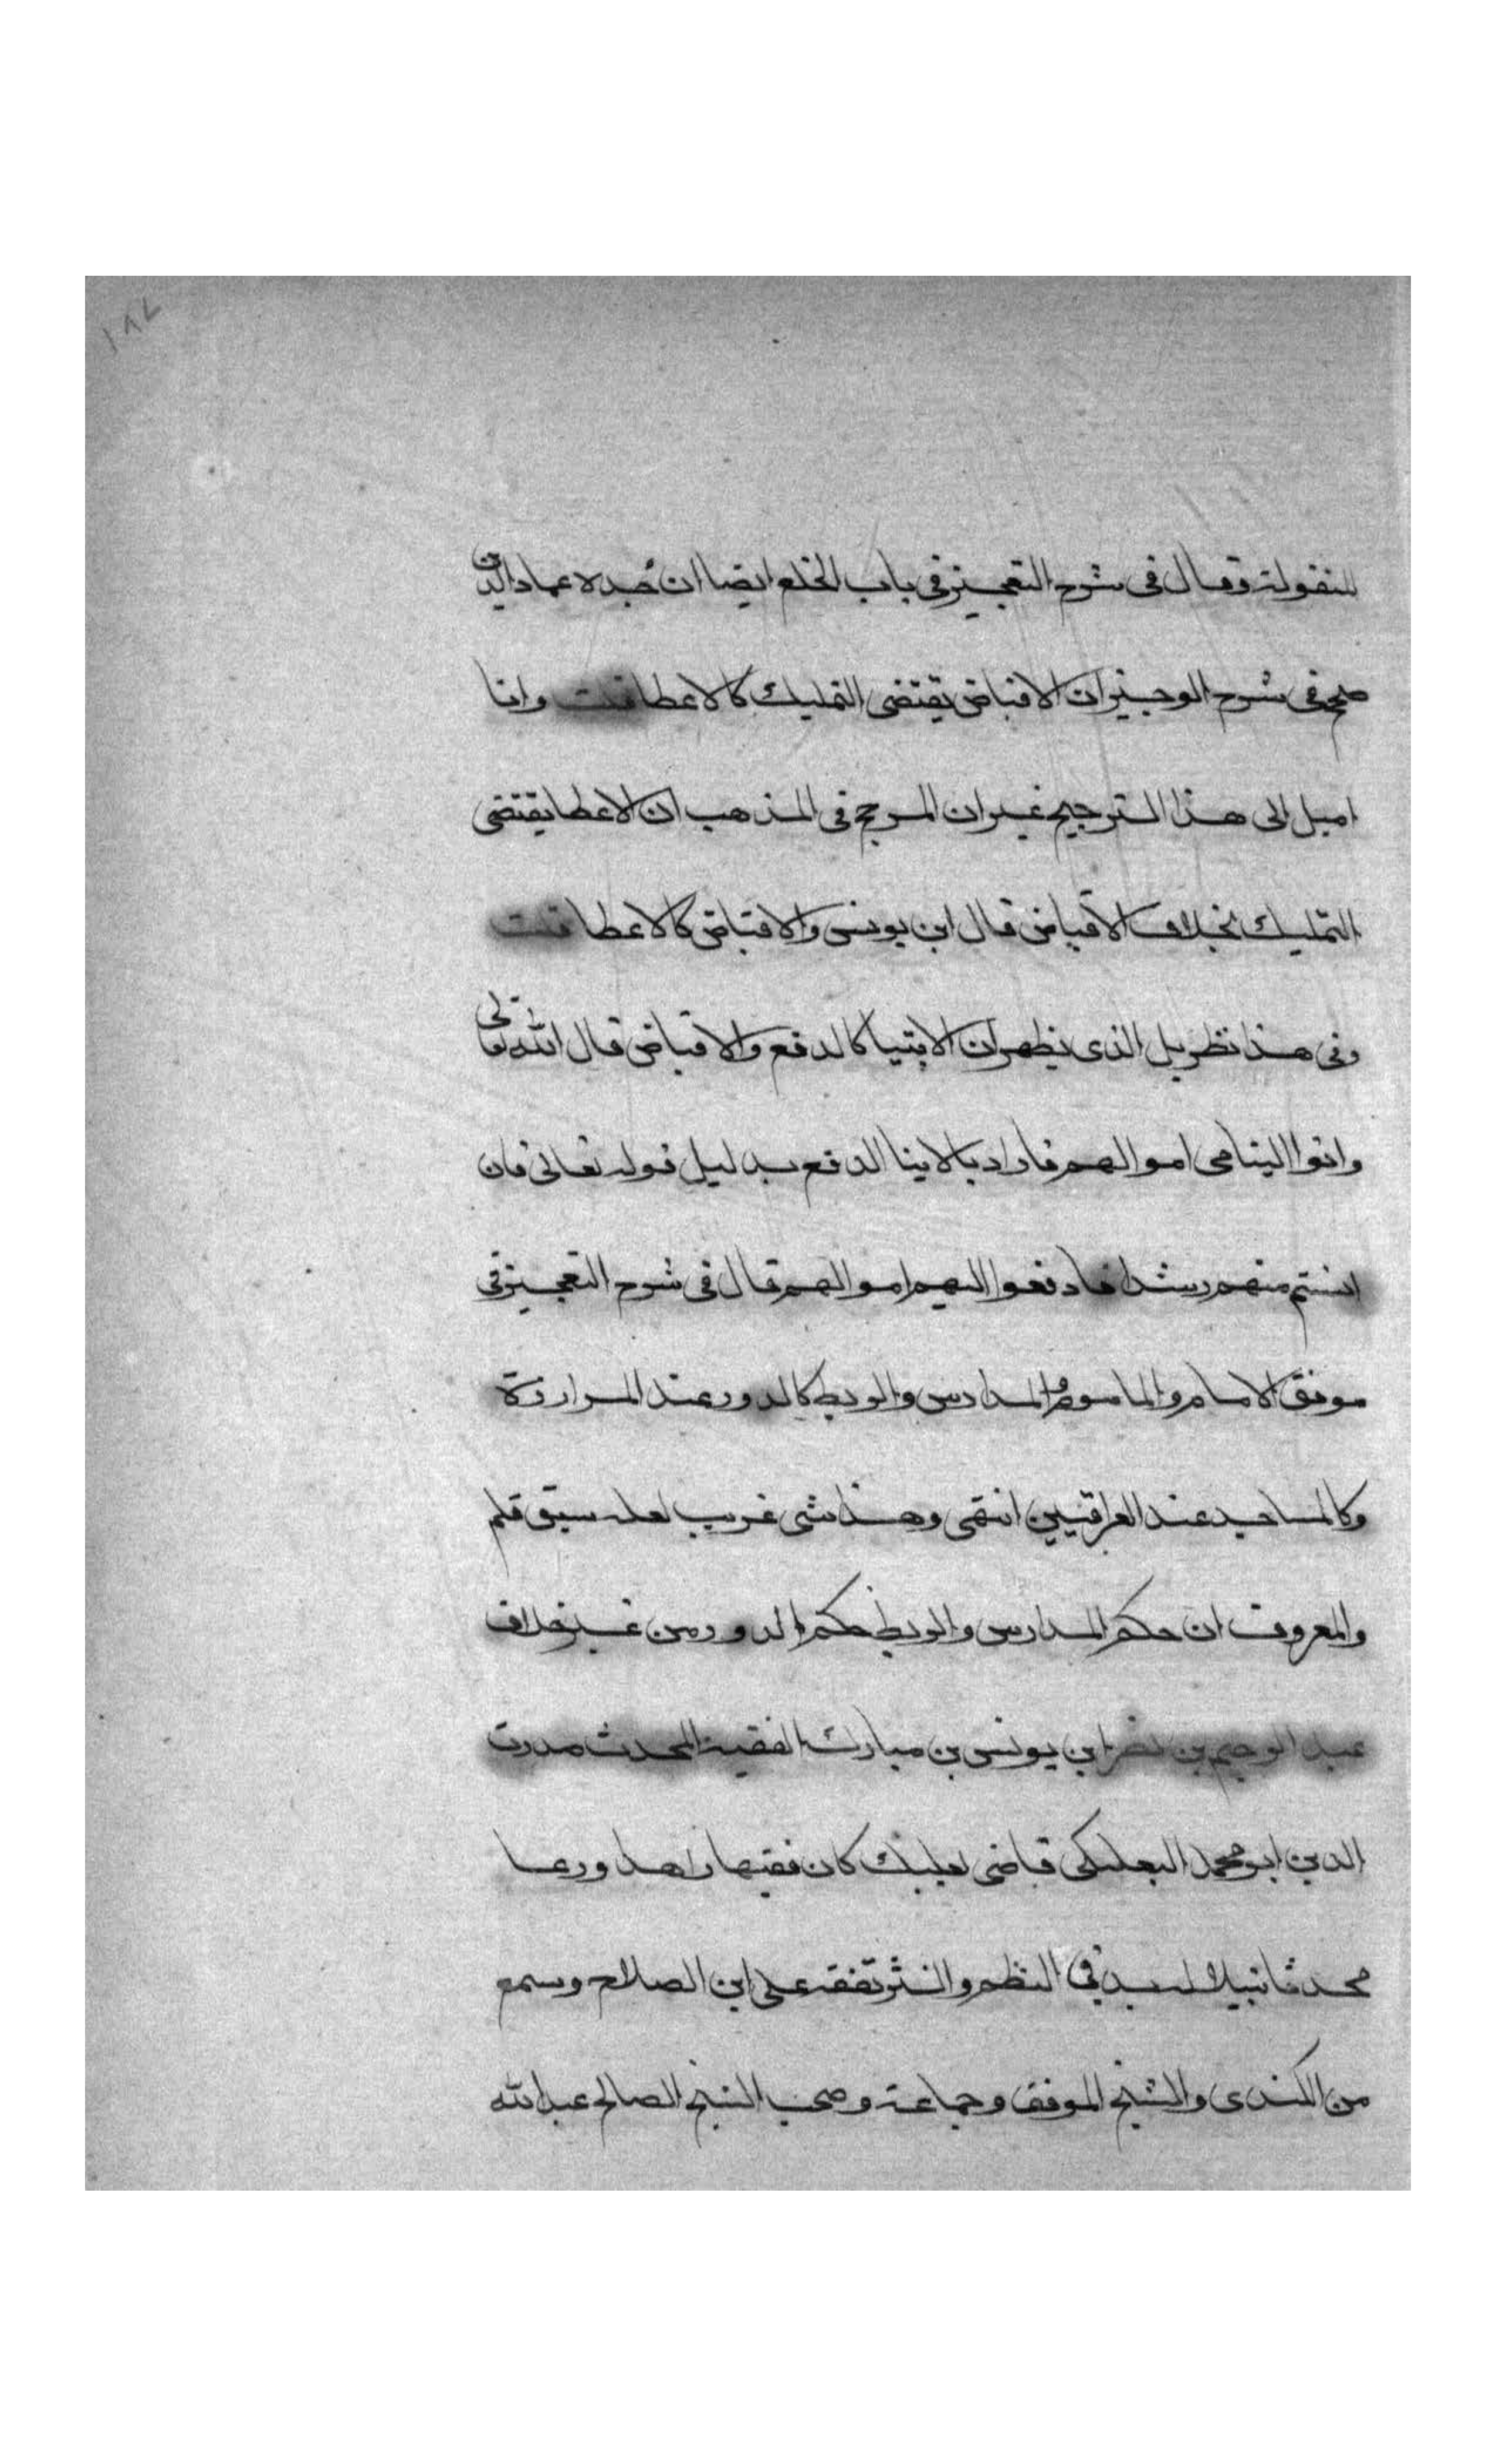 ١٨٧
المنقولة وقال فى شرح التعجيز فى باب الخلع ايضا ان جده عماد الدين
صحح فى شرح الوجيز ان الاقباض يقتضى التمليك كالاعطا قلت وانا
اميل الى هذا الترجيح غير ان المرجح فى المذهب ان الاعطا يقتضى
التمليك بخلاف الاقباض قال ابن يونس والاقباض كالاعطا قلت
وفى هذا نظر بل الذى يظهر ان الايتيا كالدفع والاقباض قال الله تعالى
واتوا اليتامى اموالهم فاراد بالايتا الدفع بدليل قوله تعالى فان
انستم منهم رشدا فادفعوا اليهم اموالهم قال فى شرح التعجيز فى
موقف الامام والماموم المدارس والربط كالدور عند المراوزة
وكالمساجد عند العراقيين انتهى وهذا شى غريب لعله سبق قلم
والمعروف ان حكم المدارس والربط حكم الدور من غير خلاف
عبد الرحيم بن نصر ابن يونس بن مبارك الفقيه المحدث صدرت
الدين ابو محمد البعلبكى قاضى بعلبك كان فقيها زاهدا ورعا
محدثا نبيلا له يد فى النظم والنثر تفقه على ابن الصلاح وسمع
من الكندى والشيخ الموفق وجماعة وصحب الشيخ الصالح عبد الله